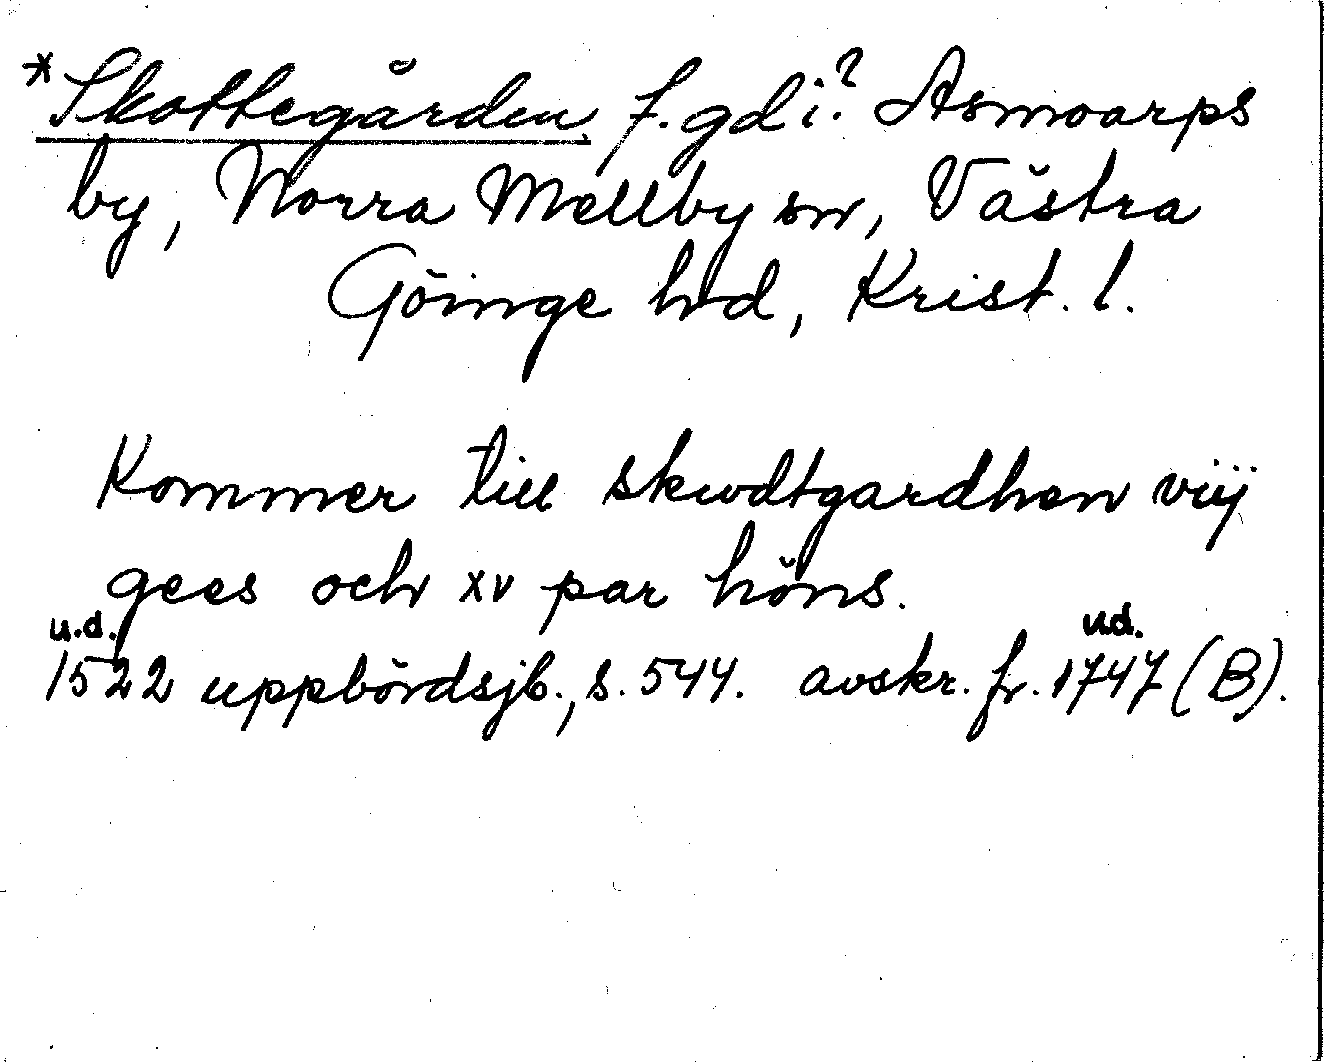 *Skottegården f. gd i? Asmoarps
by, Norra Mellby sn, Västra
Göinge hd, Krist. l.
Kommer till skwdtgardhen viÿ
gees och xv par höns.
u.d. u.d.
1522 uppbördsjb., s. 544. avskr. fr. 1747 (B).